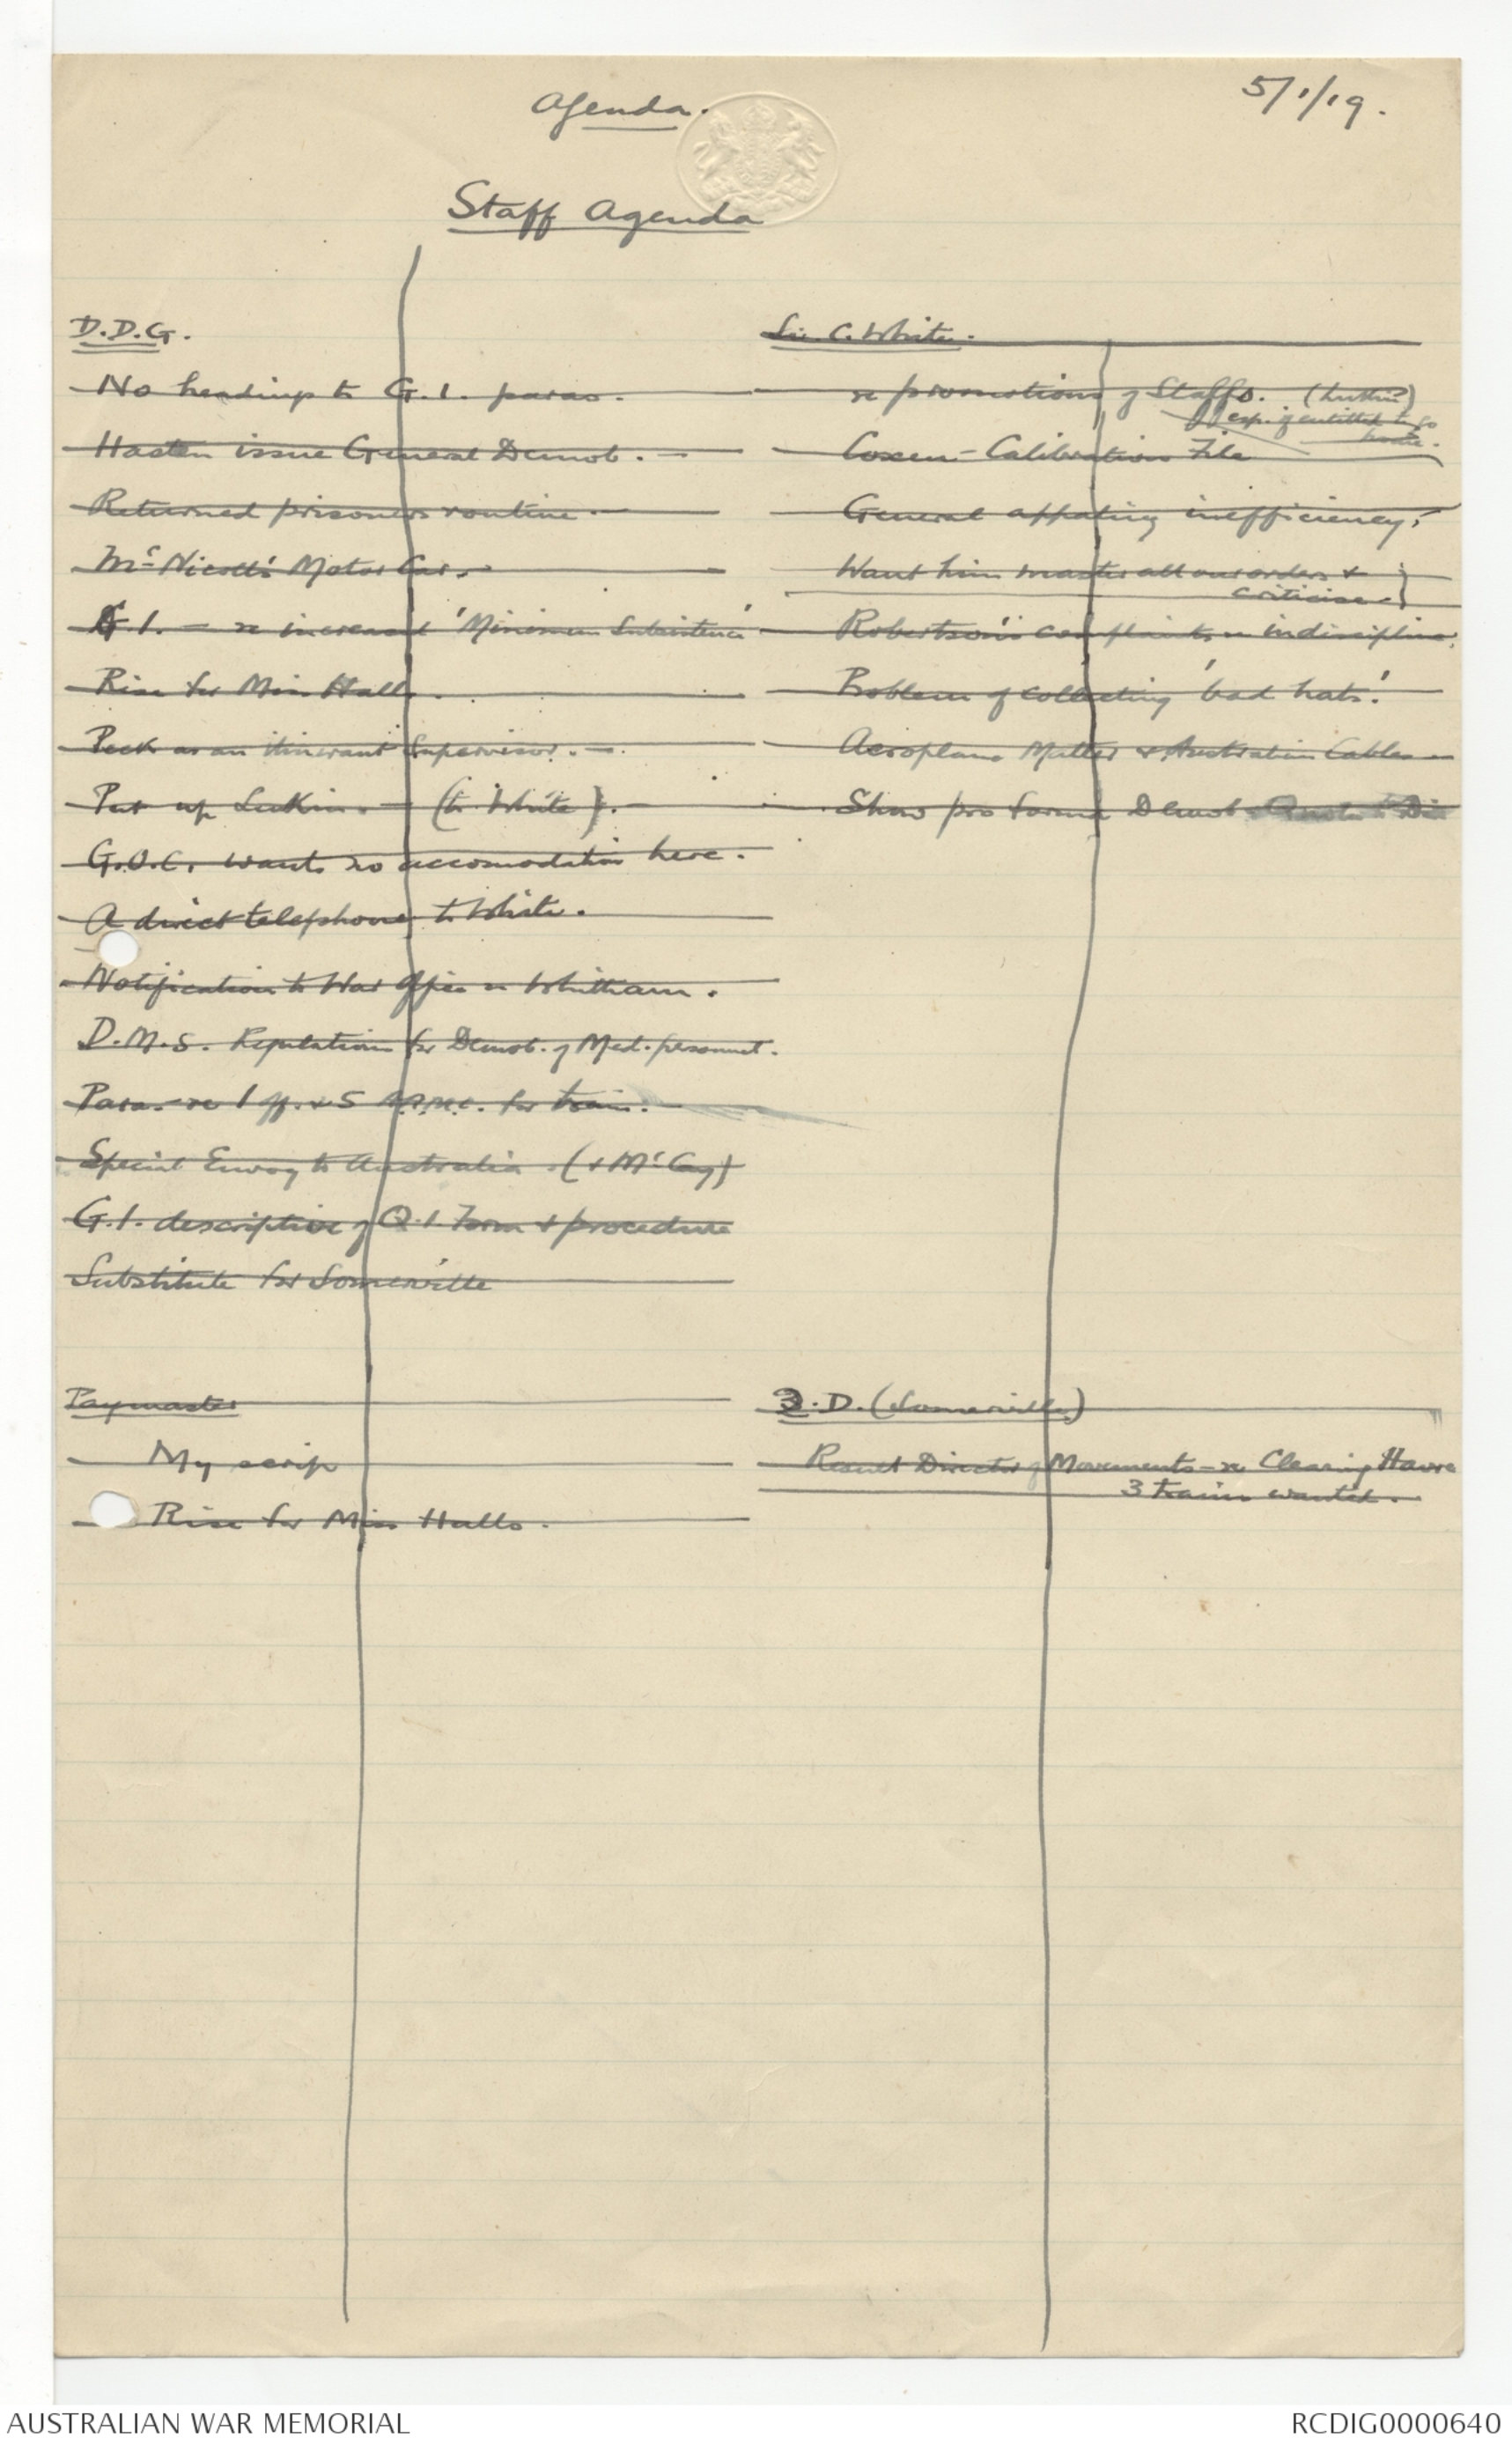 Agenda.
5/1/19.
Staff Agenda
D.D.G.
No headings to G.1. paras.
Hasten issue General Demob.
Returned prisoners routine
McNicoll's Motor Car.
G.1. - re increased 'Minimum Subsistence'
Rise for Miss Halls.
Peck as an itinerant Supervisor.
Put up Luckin. - (to White).
G.O.C. wants no accomodation here.
A direct telephone to White.
Notification to War Office re Whitham.
D.M.S. Regulations for Demob. of Med. personnel.
Para. re 1 off. & 5 for train.
Special Envoy to Australia. (& McCay)
G.1. descriptive of Q.1 Form & procedure
Substitute for Somerville
Paymaster
My scrip
Rise for Miss Halls.
Sir C. White.
re promotions of Staffs.
esp. if entitled to go
home.
Coxen - Calibration File
General appaling inefficiency!
Want him master all our orders &
criticise
Robertson's complaints re indiscipline.
Problem of collecting 'bad hats'.
Aeroplane Matter & Australian Cables
Show pro forma Demob
3.D. (Somerville)
Result Director of Movements - re Clearing Havre
3 trains wanted.
AUSTRALIAN WAR MEMORIAL
RCDIG0000640